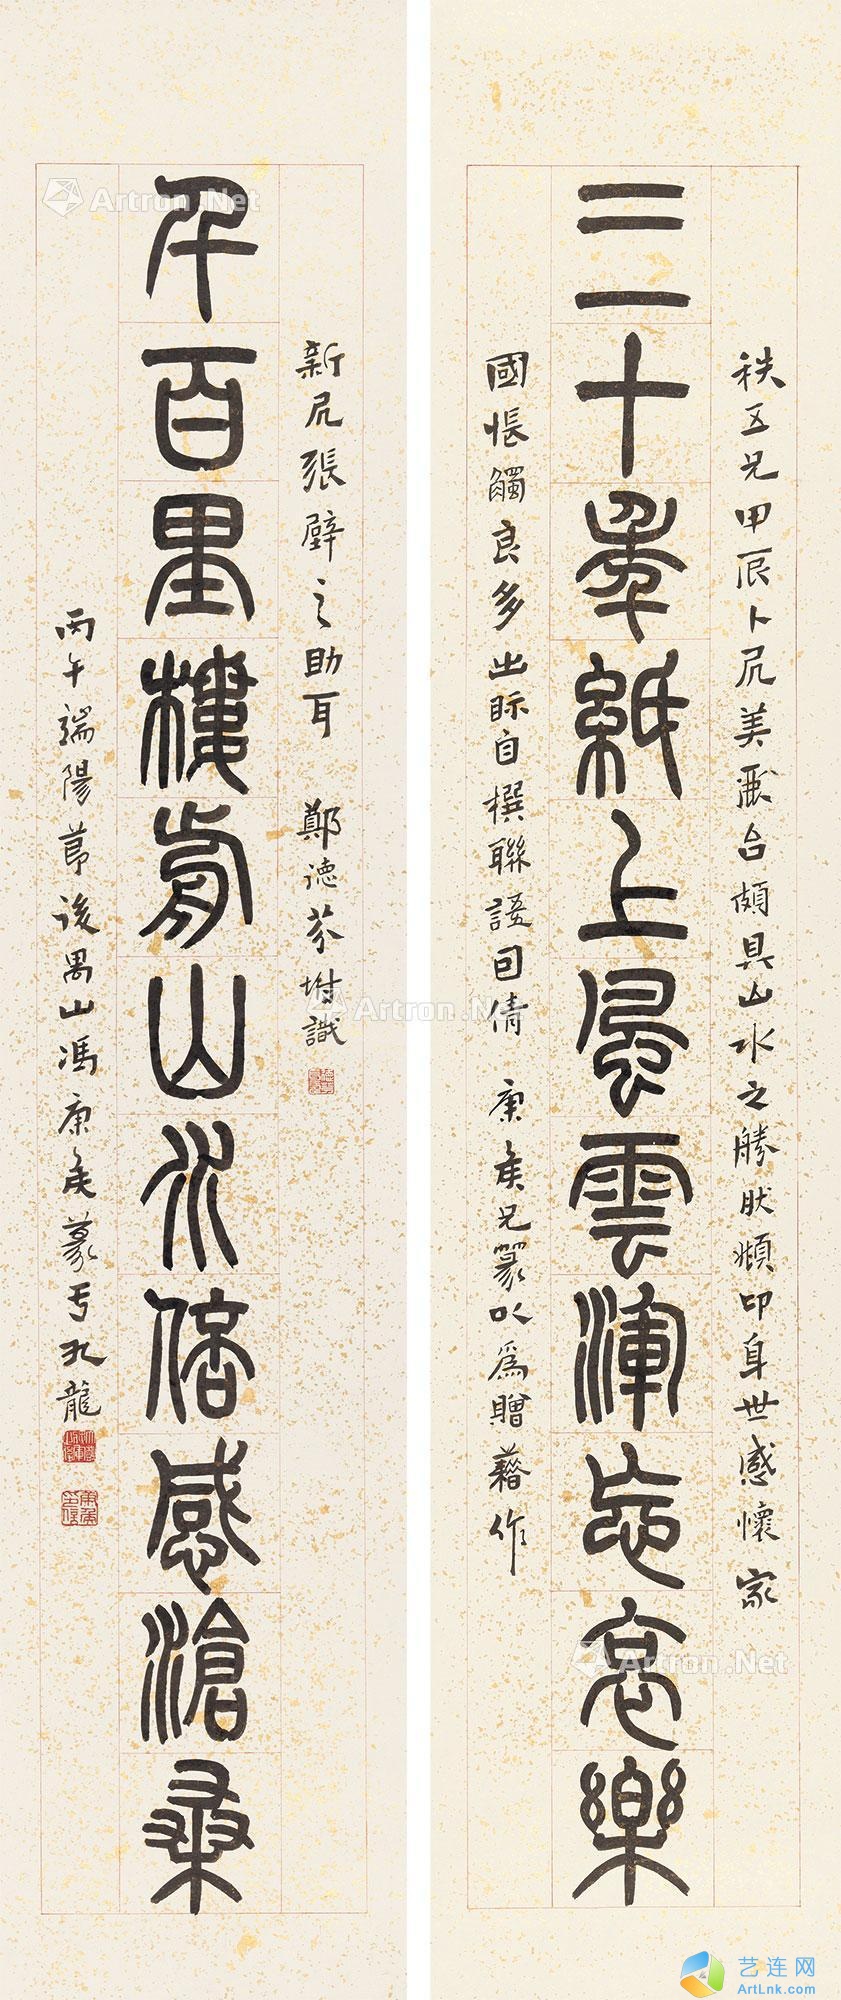 三十年紙上風雲渾忘哀樂
秩五兄甲辰卜凥美台頗具山水之勝肰頫卬身世感懷家
國悵觸良多出眎自撰聯語囙倩 康矦兄篆以為贈藉作
千百里樓前山水倍感滄桑
新凥張壁之助耳 鄭德芬坿識
丙午端陽節後禺山馮康矦篆于九龍
Artron.Net
Artron.Net
Artron.Net
艺连网
ArtLnk.com